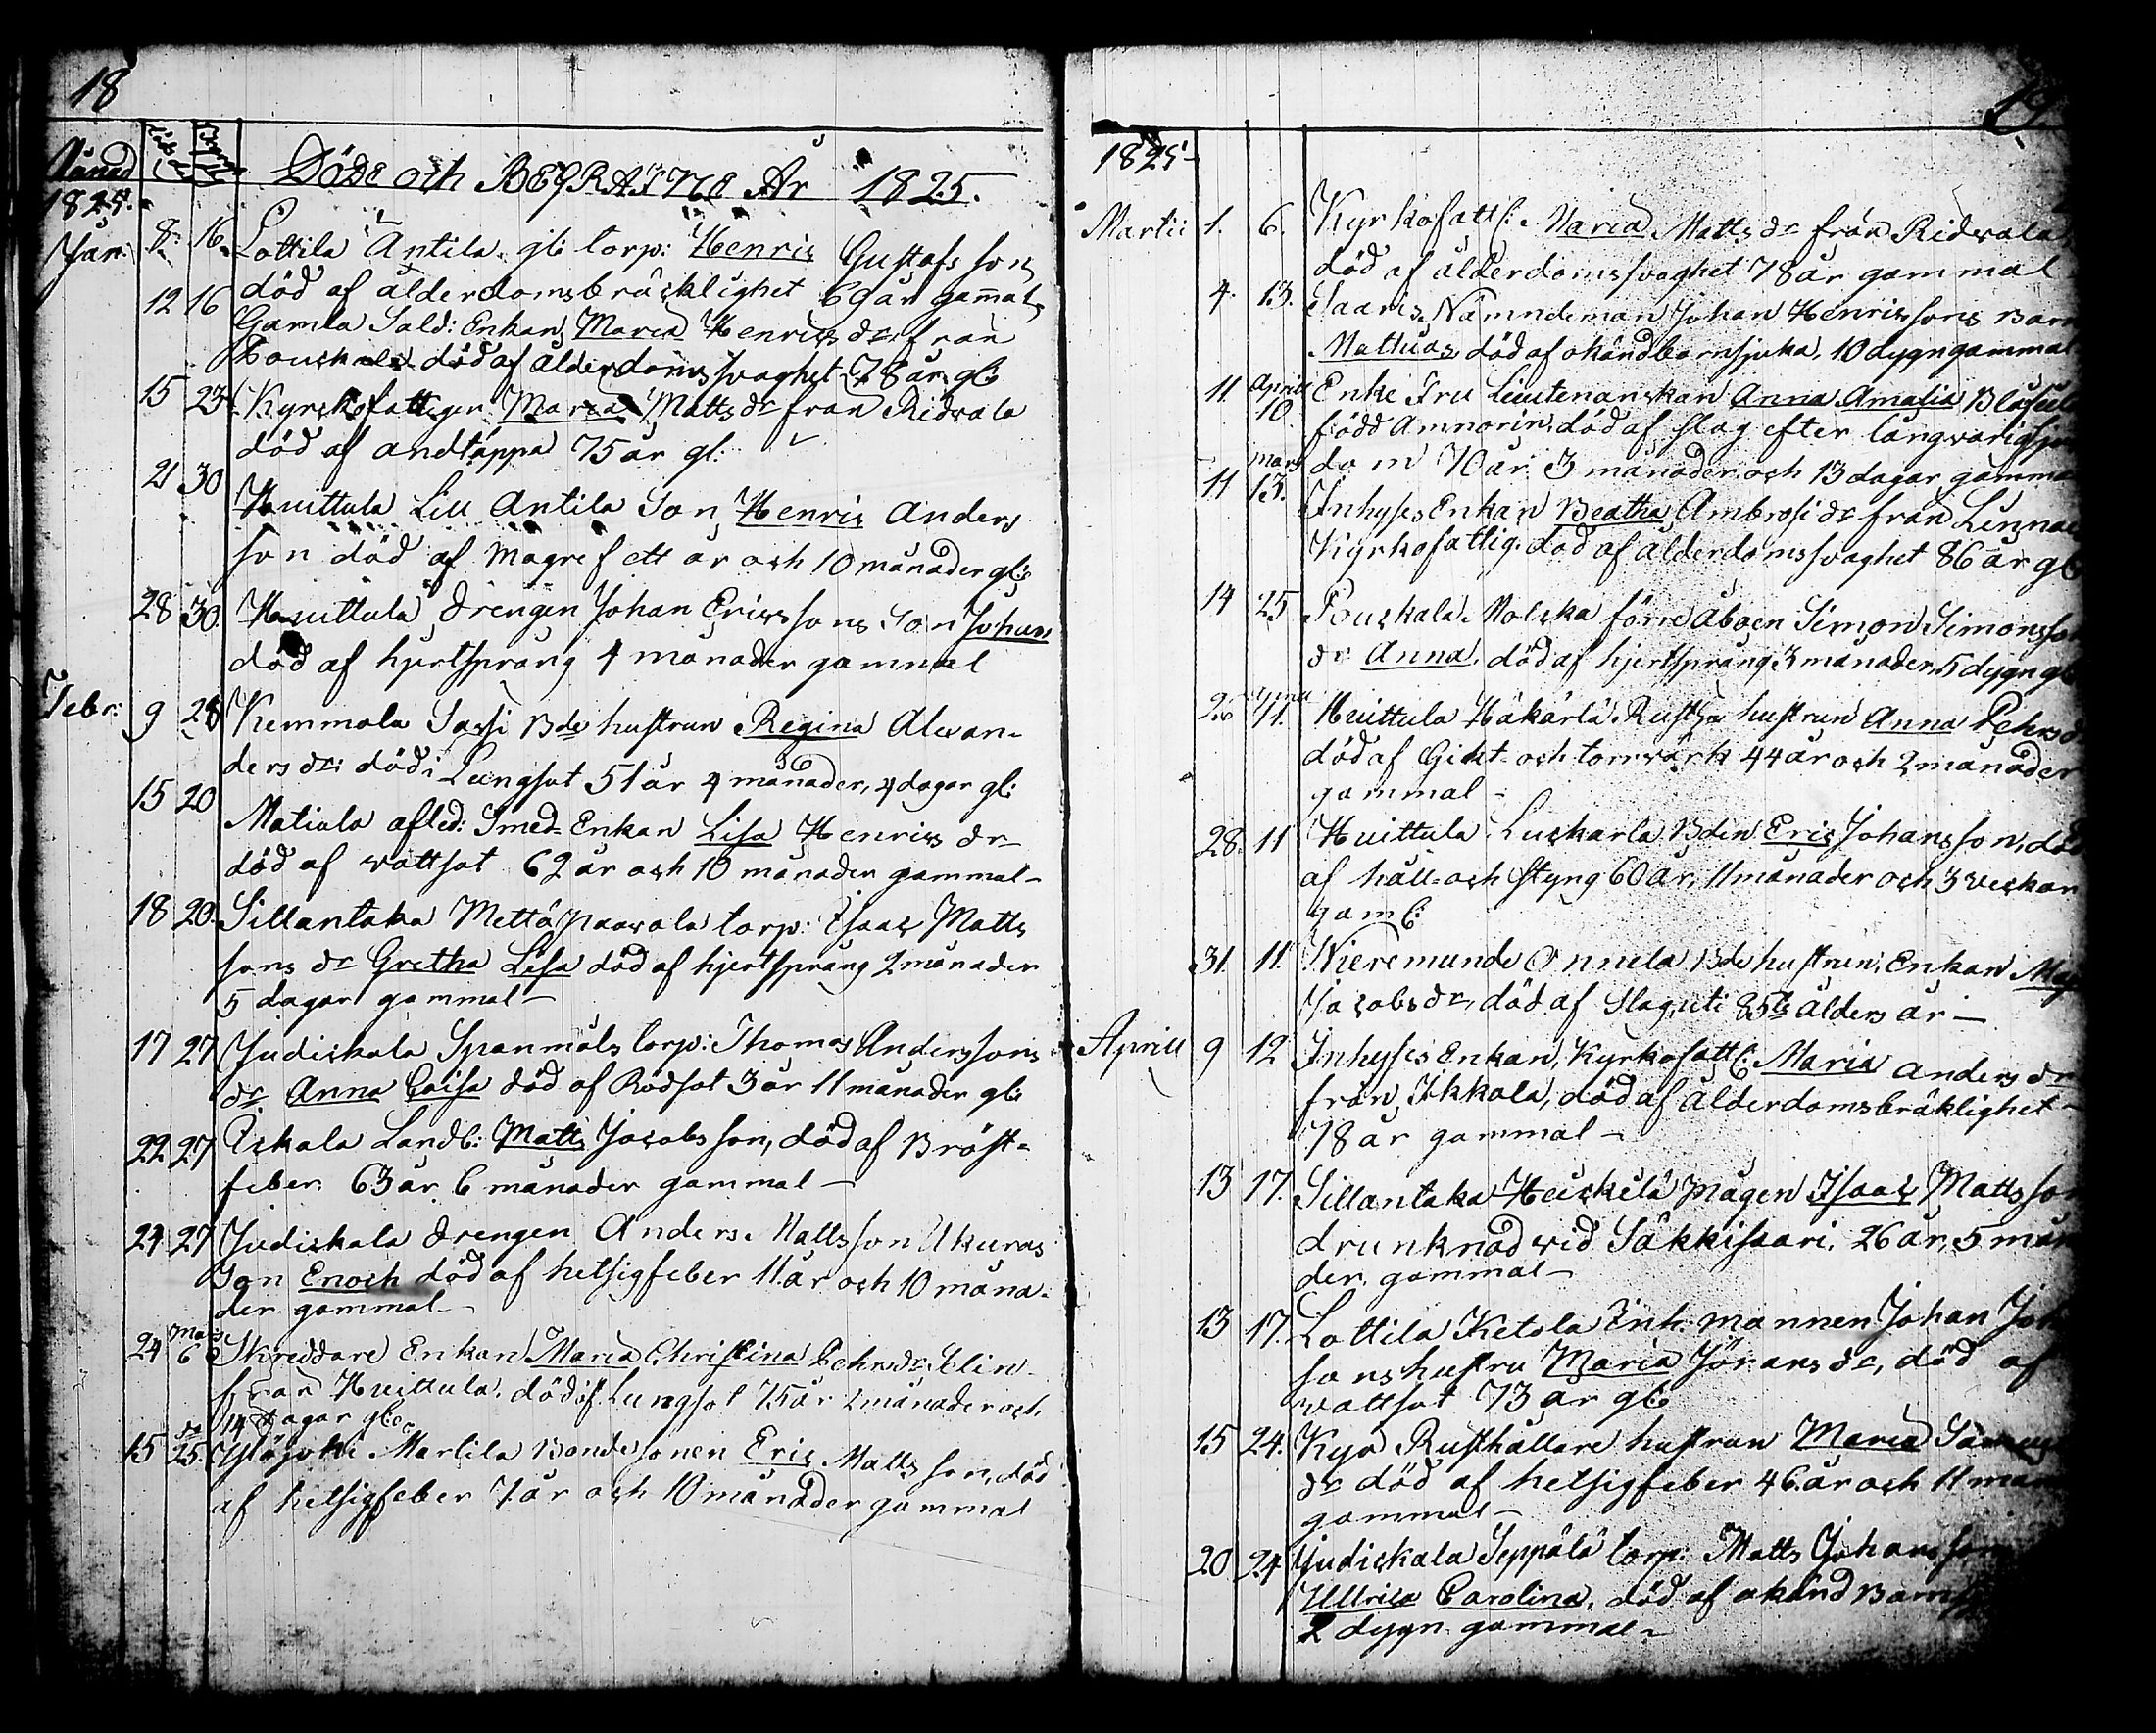 18
Månad
1825.
DÖDE och BEGRAFNE År 1825.
Jan: 8. 16. Lottila Antila gl: torp: Henric Gustafs son
död af ålderdomsbräcklighet 69 år gamal
12 16 Gamla Sald: Enkan Maria Henrics dr från
Pouskala död af ålderdoms svaghet 78 år gl:
15 23 Kyrckofattigen Maria Matts dr från Ridvala
död af andtäppa 75 år gl:
21 30 Huittula Lill Antila Son Henric Anders
son död af Magref ett år och 10 månader gl:
28 30. Huittula Drengen Johan Ericssons Son Johan
död af hjertsprång 4 månader gammal
Febr: 9 28 Kemmola Sassi Bde hustrun Regina Alexan-
ders dr: död i Lungsot 51 år 4 månader, 4 dagar gl:
15 20 Matiala afled: Smed Enkan Lisa Henrics dr
död af vattsot 62 år och 10 månader gammal
18 20. Sillantaka Mettä Paavola torp: Isaac Matts
sons dr Gretha Lisa död af hjertsprång 2 månader
5 dagar gammal
17 27 Judickala Spanmåls torp: Thomas Anderssons
dr Anna Caisa död af Rödsot 3 år 11 månader gl:
22 27 Uskala Landb: Matts Jacobs son, död af Bröst-
feber. 63 år 6 månader gammal
24 27 Judickala Drengen Anders Mattsson Akuras
Son Enoch död af hetsigfeber 11 år och 10 måna-
der gammal
24 Mars 6 Skreddare Enkan Maria Christina Pehrs dr Selin
från Huittula, död af Lungsot 75 år 2 månader och
14 dagar gl:
15 do 25. Yläjoki Martila Bonde sonen Eric Matts son, död
af hetsigfeber 7 år och 10 månader gammal
19
1825
Martii 1. 6. Kyrkofatt: Maria Matts dr från Ridvala
död af ålderdomssvaghet 78 år gammal
4. 13. Saaris Nämndeman Johan Henricssons Barn
Mathias död af okändbarnsjuka, 10 dygn gammal
11 Aprill 10. Enke Fru Lieutenanskan Anna Amalia
född Amnorin, död af slag efter långvarig sju
dom 70 år 3 månader och 13 dagar gamma
11 Mars 13. Inhyses Enkan Beatha Ambrosi dr från
Kyrkofattig. död af ålderdomssvaghet 86 år gl:
14 25 Pouskala Molska förre åboen Simon Simonsson
dr Anna, död af hjertsprång 3 månader 5 dygn gl
26 Aprill 11. Huittula Häkärlä Rusth: hustrun Anna Pehrs d
död af Gikt och tomvärk 44 år och 2 månader
gammal
28. 11 Huittula Luckarla Bden Eric Johansson, död
af håll- och styng 60 år, 11 månader och 3 veckor
gaml:
31. 11. Wieremunde Onnela Bde hustrun, Enkan
Jacobs dr, död af Slag, uti 85te ålders år
Aprill 9 12 Inhyses Enkan, Kyrkofatt: Maria anders dr
från Ikkala, död af ålderdomsbräklighet
78 år gammal
13 17. Sillantaka Heickilä mågen Isaac Matts son
drunknad vid Säkkisaari, 26 år, 5 mån
der gammal
13 17. Lottila Ketola Inh: mannen Johan Joh
sons hustru Maria Jörans dr, död af
vattsot 73 år gl:
15 24. Kyrö Rusthållare hustrun Maria
dr död af hetsigfeber 46 år och 11 mån
gammal
20 24 Judickala Seppälä torp: Matts Johans son
Ullrica Carolina, död af okänd Barns
2 dygn gammal